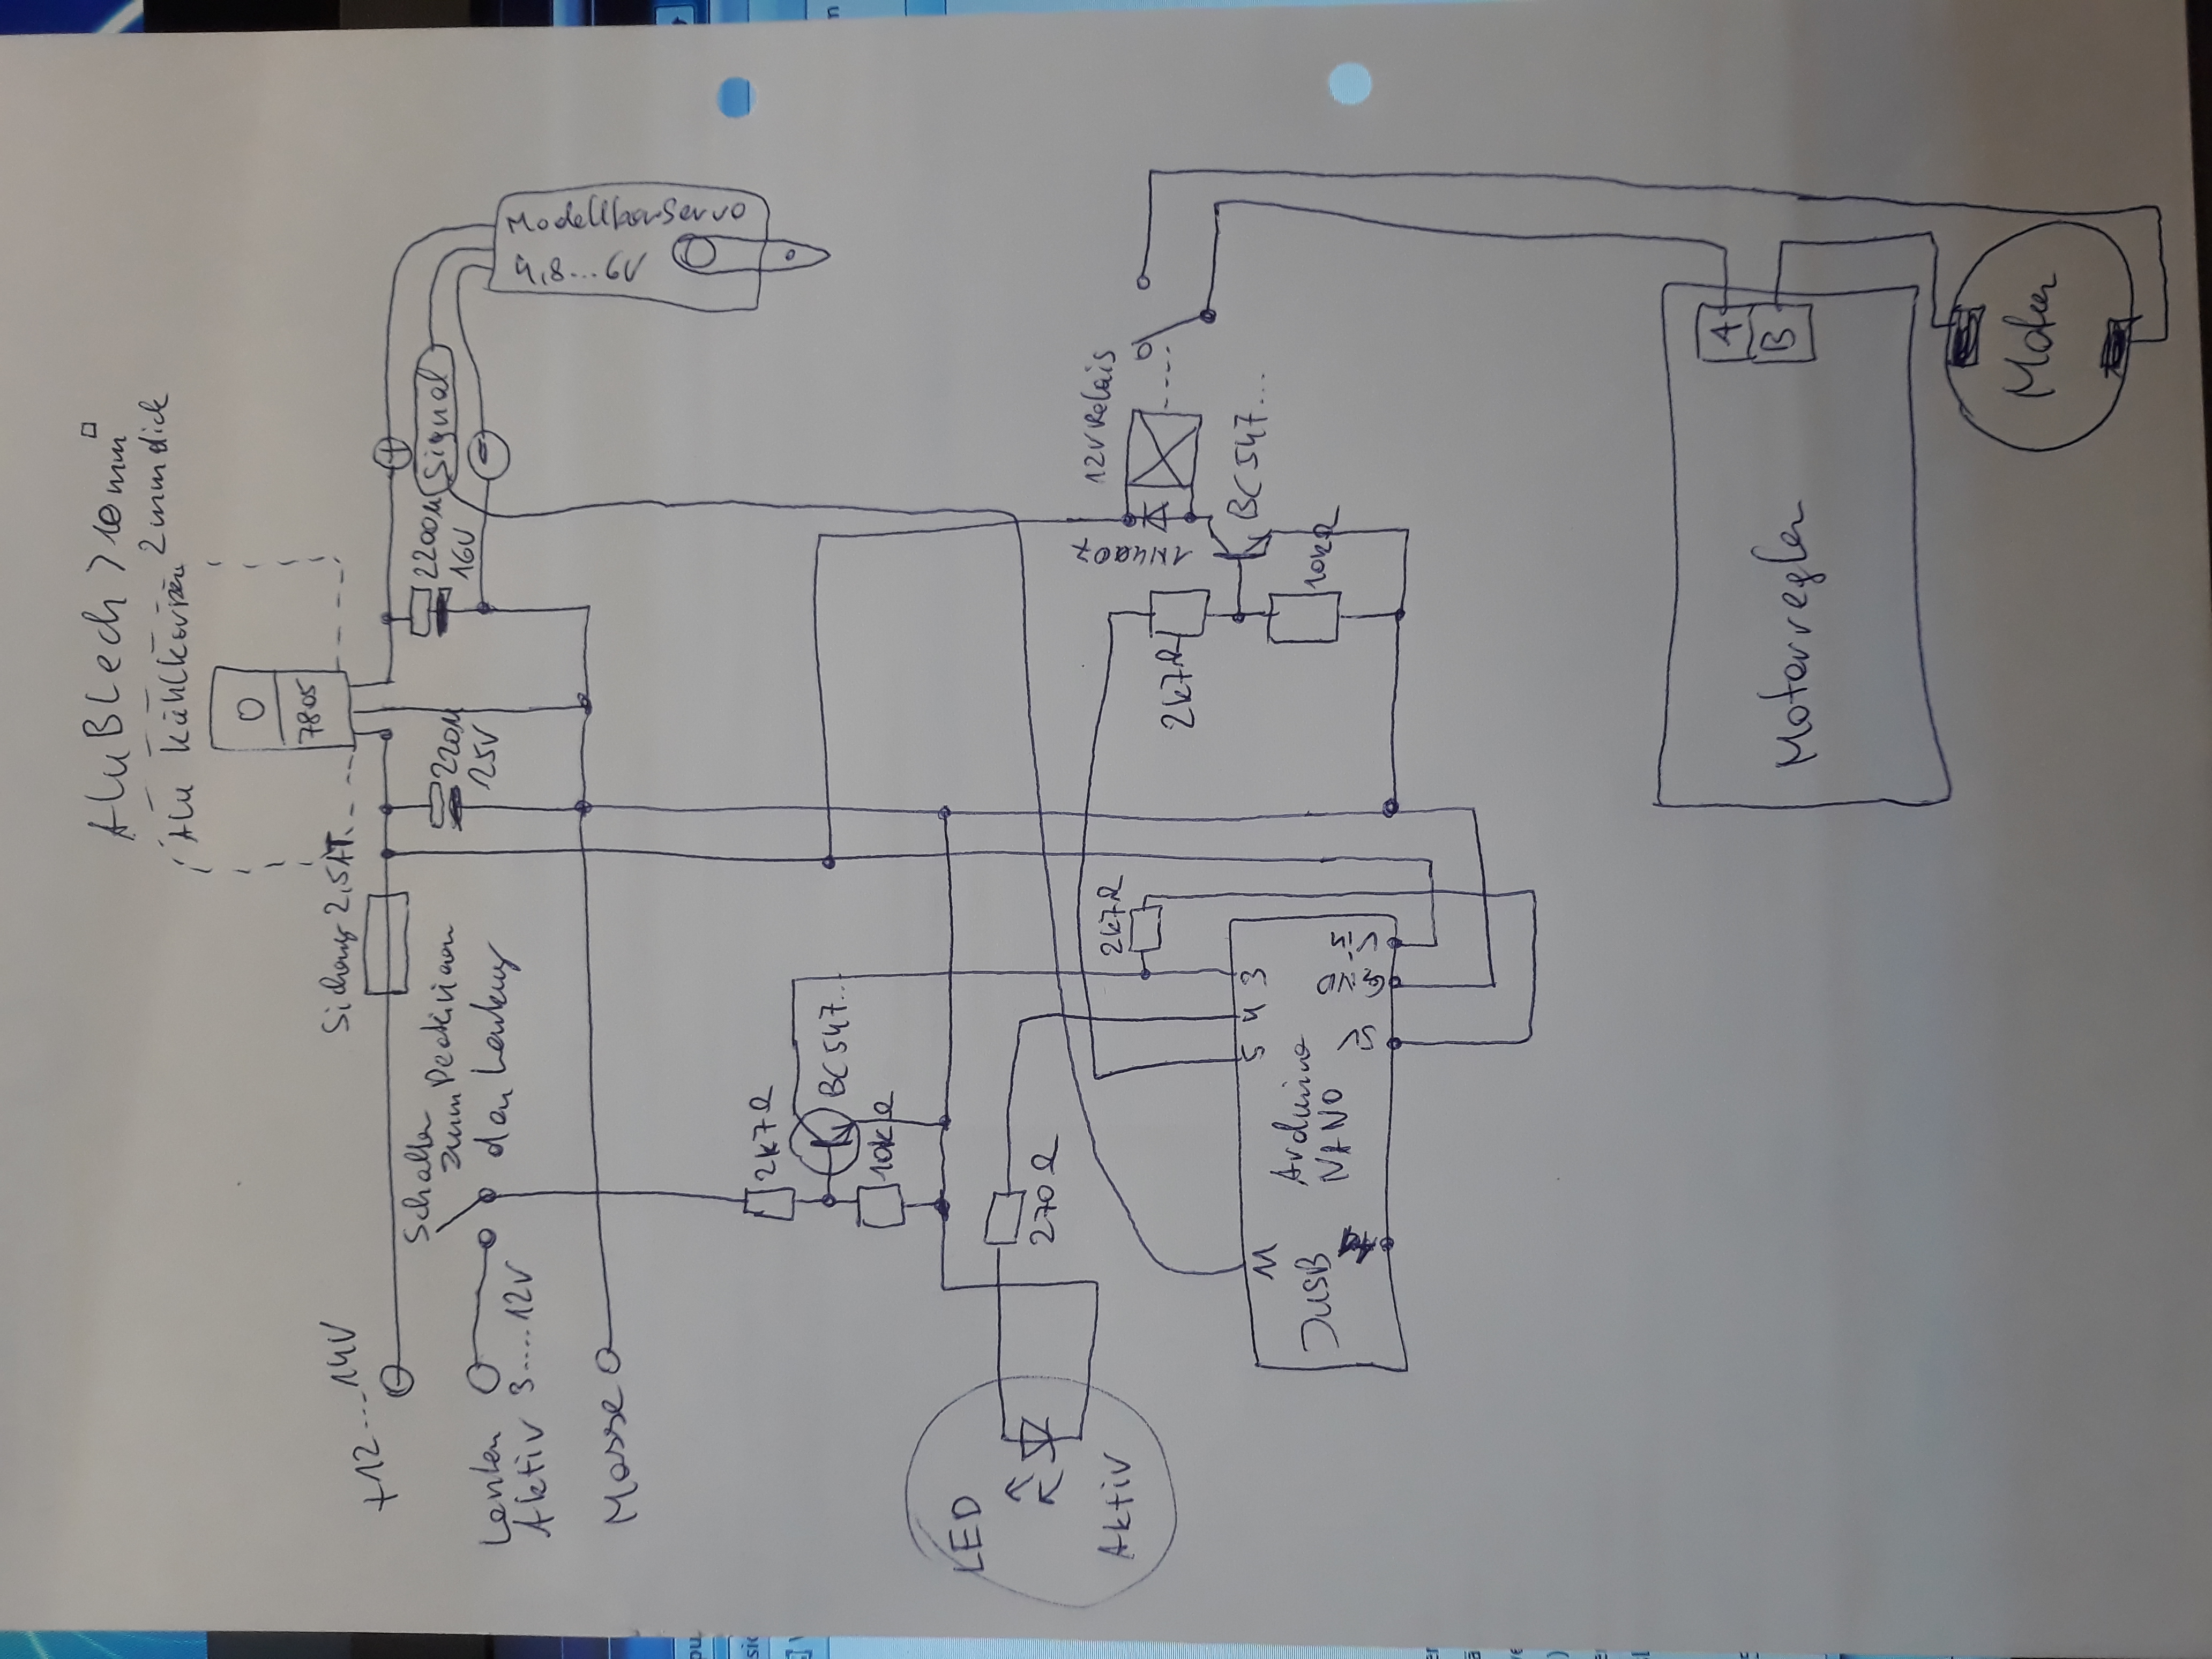 Alu Blech > 10 mm □
2 mm dick
Alu Kühlkörper
7805
+12....14V
Sicherung 2,5AT
Schalter
zum Deaktivieren
der Lenkung
Lenken
Aktiv 3....12V
Masse
220µ
25V
2200µ
16V
+
Signal
-
Modellbau Servo
4,8...6V
2k7Ω
BC547..
10kΩ
LED
Aktiv
270Ω
2k7Ω
2k7Ω
1N4007
12V Relais
BC547...
10kΩ
11
5 4 3
USB
Arduino
NANO
5V
GND
Vin
Motorregler
A
B
Motor